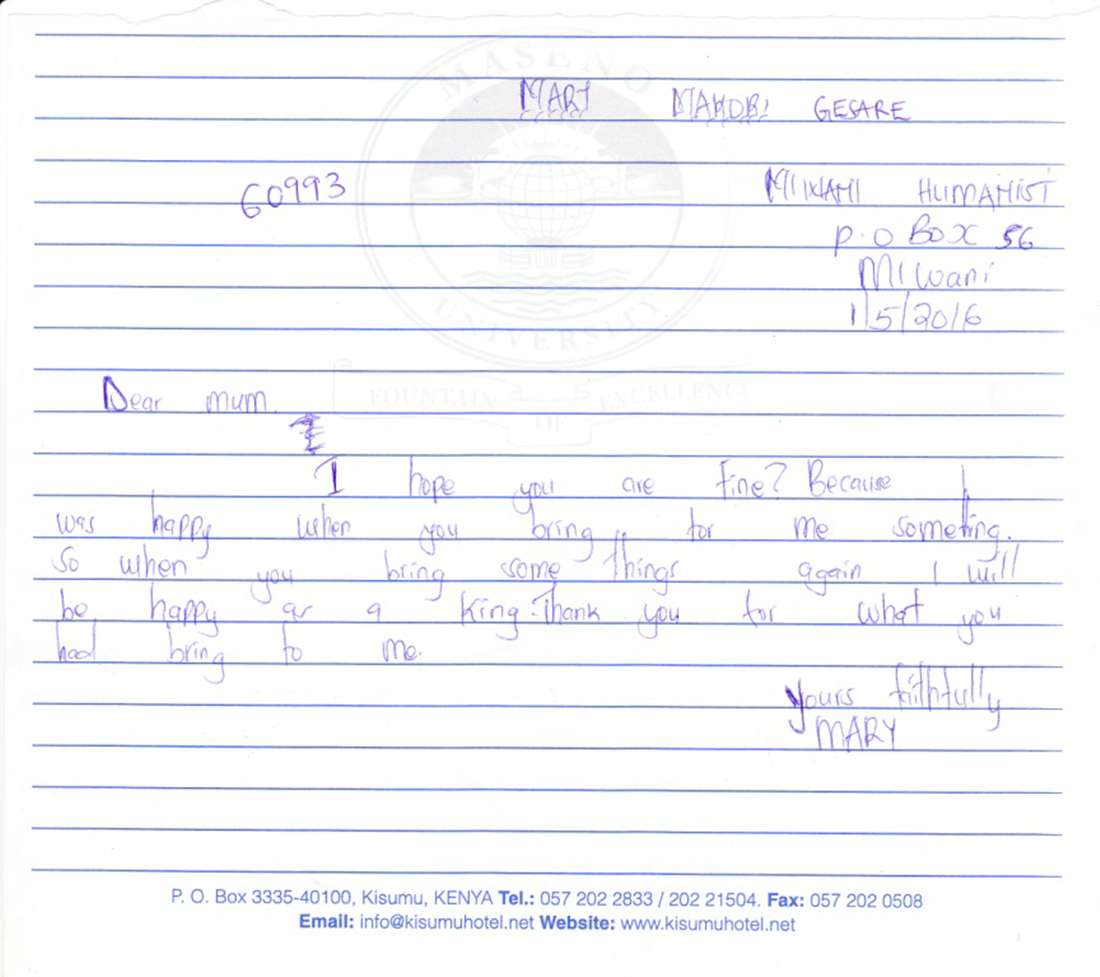 MASENO
MARY MAKOBI GESARE
60993 MIWANI HUMANIST
P.O BOX 56
Miwani
1/5/2016
UNIVERSITY
Dear mum.
FOUNTAIN EXCELLENCE
OF
I
I hope you are fine? Because I
was happy when you bring for me something.
So when you bring some things again I will
be happy as a King. Thank you for what you
had bring to me.
yours faithfully
MARY
P. O. Box 3335-40100, Kisumu, KENYA Tel.: 057 202 2833 / 202 21504. Fax: 057 202 0508
Email: info@kisumuhotel.net Website: www.kisumuhotel.net